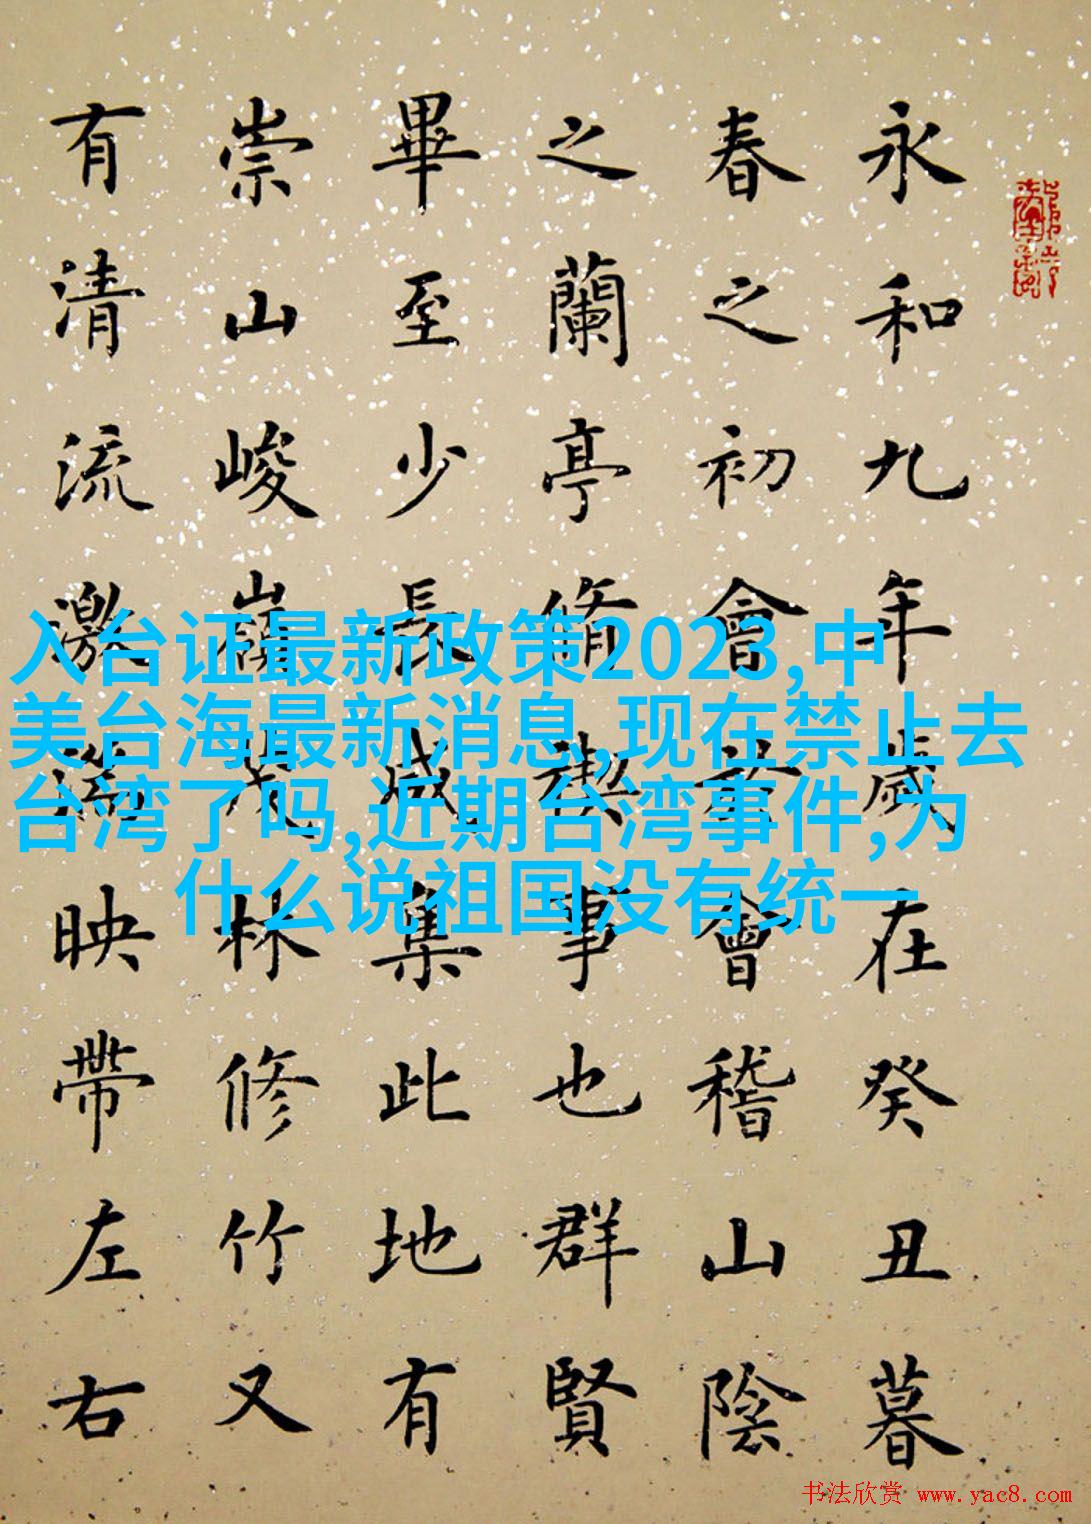 永和九年歲在癸丑暮
春之初會於會稽山陰
之蘭亭脩禊事也群賢
畢至少長咸集此地有
崇山峻嶺茂林修竹又
有清流激湍映帶左右
入台证最新政策2023,中
美台海最新消息,现在禁止去
台湾了吗,近期台湾事件,为
什么说祖国没有统一
书法欣赏 www.yac8.com